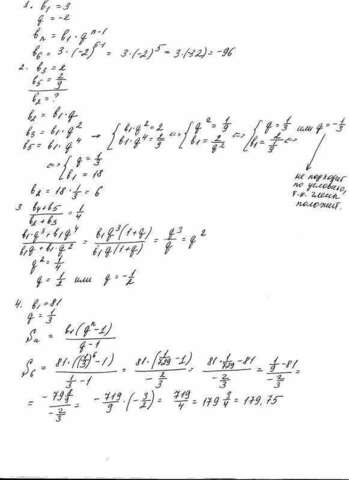 1. b₁ = 3
q = -2
bₙ = b₁ · qⁿ⁻¹
b₆ = 3 · (-2)⁶⁻¹ = 3 · (-2)⁵ = 3 · (-32) = -96
2. b₃ = 2
b₅ = 2/9
b₂ = ?
b₂ = b₁ · q
b₃ = b₁ · q²
b₅ = b₁ · q⁴ → { b₁ · q² = 2, b₁ · q⁴ = 2/9 ⇔ { q² = 1/9, b₁ = 2/q² ⇔ { q = 1/3 или q = -1/3, b₁ = 2/(1/9) ⇔
⇔ { q = 1/3, b₁ = 18
b₂ = 18 · 1/3 = 6
не подходит
по условию,
т.к. члены
положит.
3. (b₄ + b₅)/(b₂ + b₃) = 1/4
(b₁q³ + b₁q⁴)/(b₁q + b₁q²) = b₁q³(1+q)/b₁q(1+q) = q³/q = q²
q² = 1/4
q = 1/2 или q = -1/2
4. b₁ = 81
q = 1/3
Sₙ = b₁(qⁿ-1)/(q-1)
S₆ = 81 · ((1/3)⁶-1)/(1/3 - 1) = 81 · (1/729 - 1)/(-2/3) = (81 · 1/729 - 81)/(-2/3) = (1/9 - 81)/(-2/3) =
= (-79 8/9)/(-2/3) = -719/9 · (-3/2) = 719/4 = 179 3/4 = 179,75